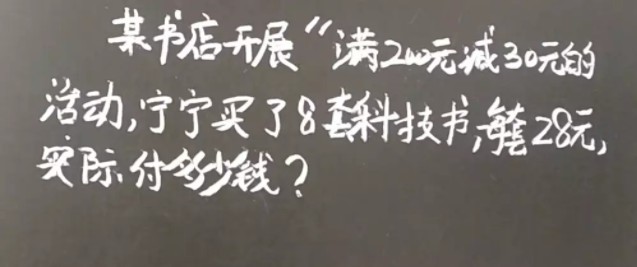 某书店开展“满200元减30元的
活动,宁宁买了8套科技书,每套28元,
实际付多少钱?